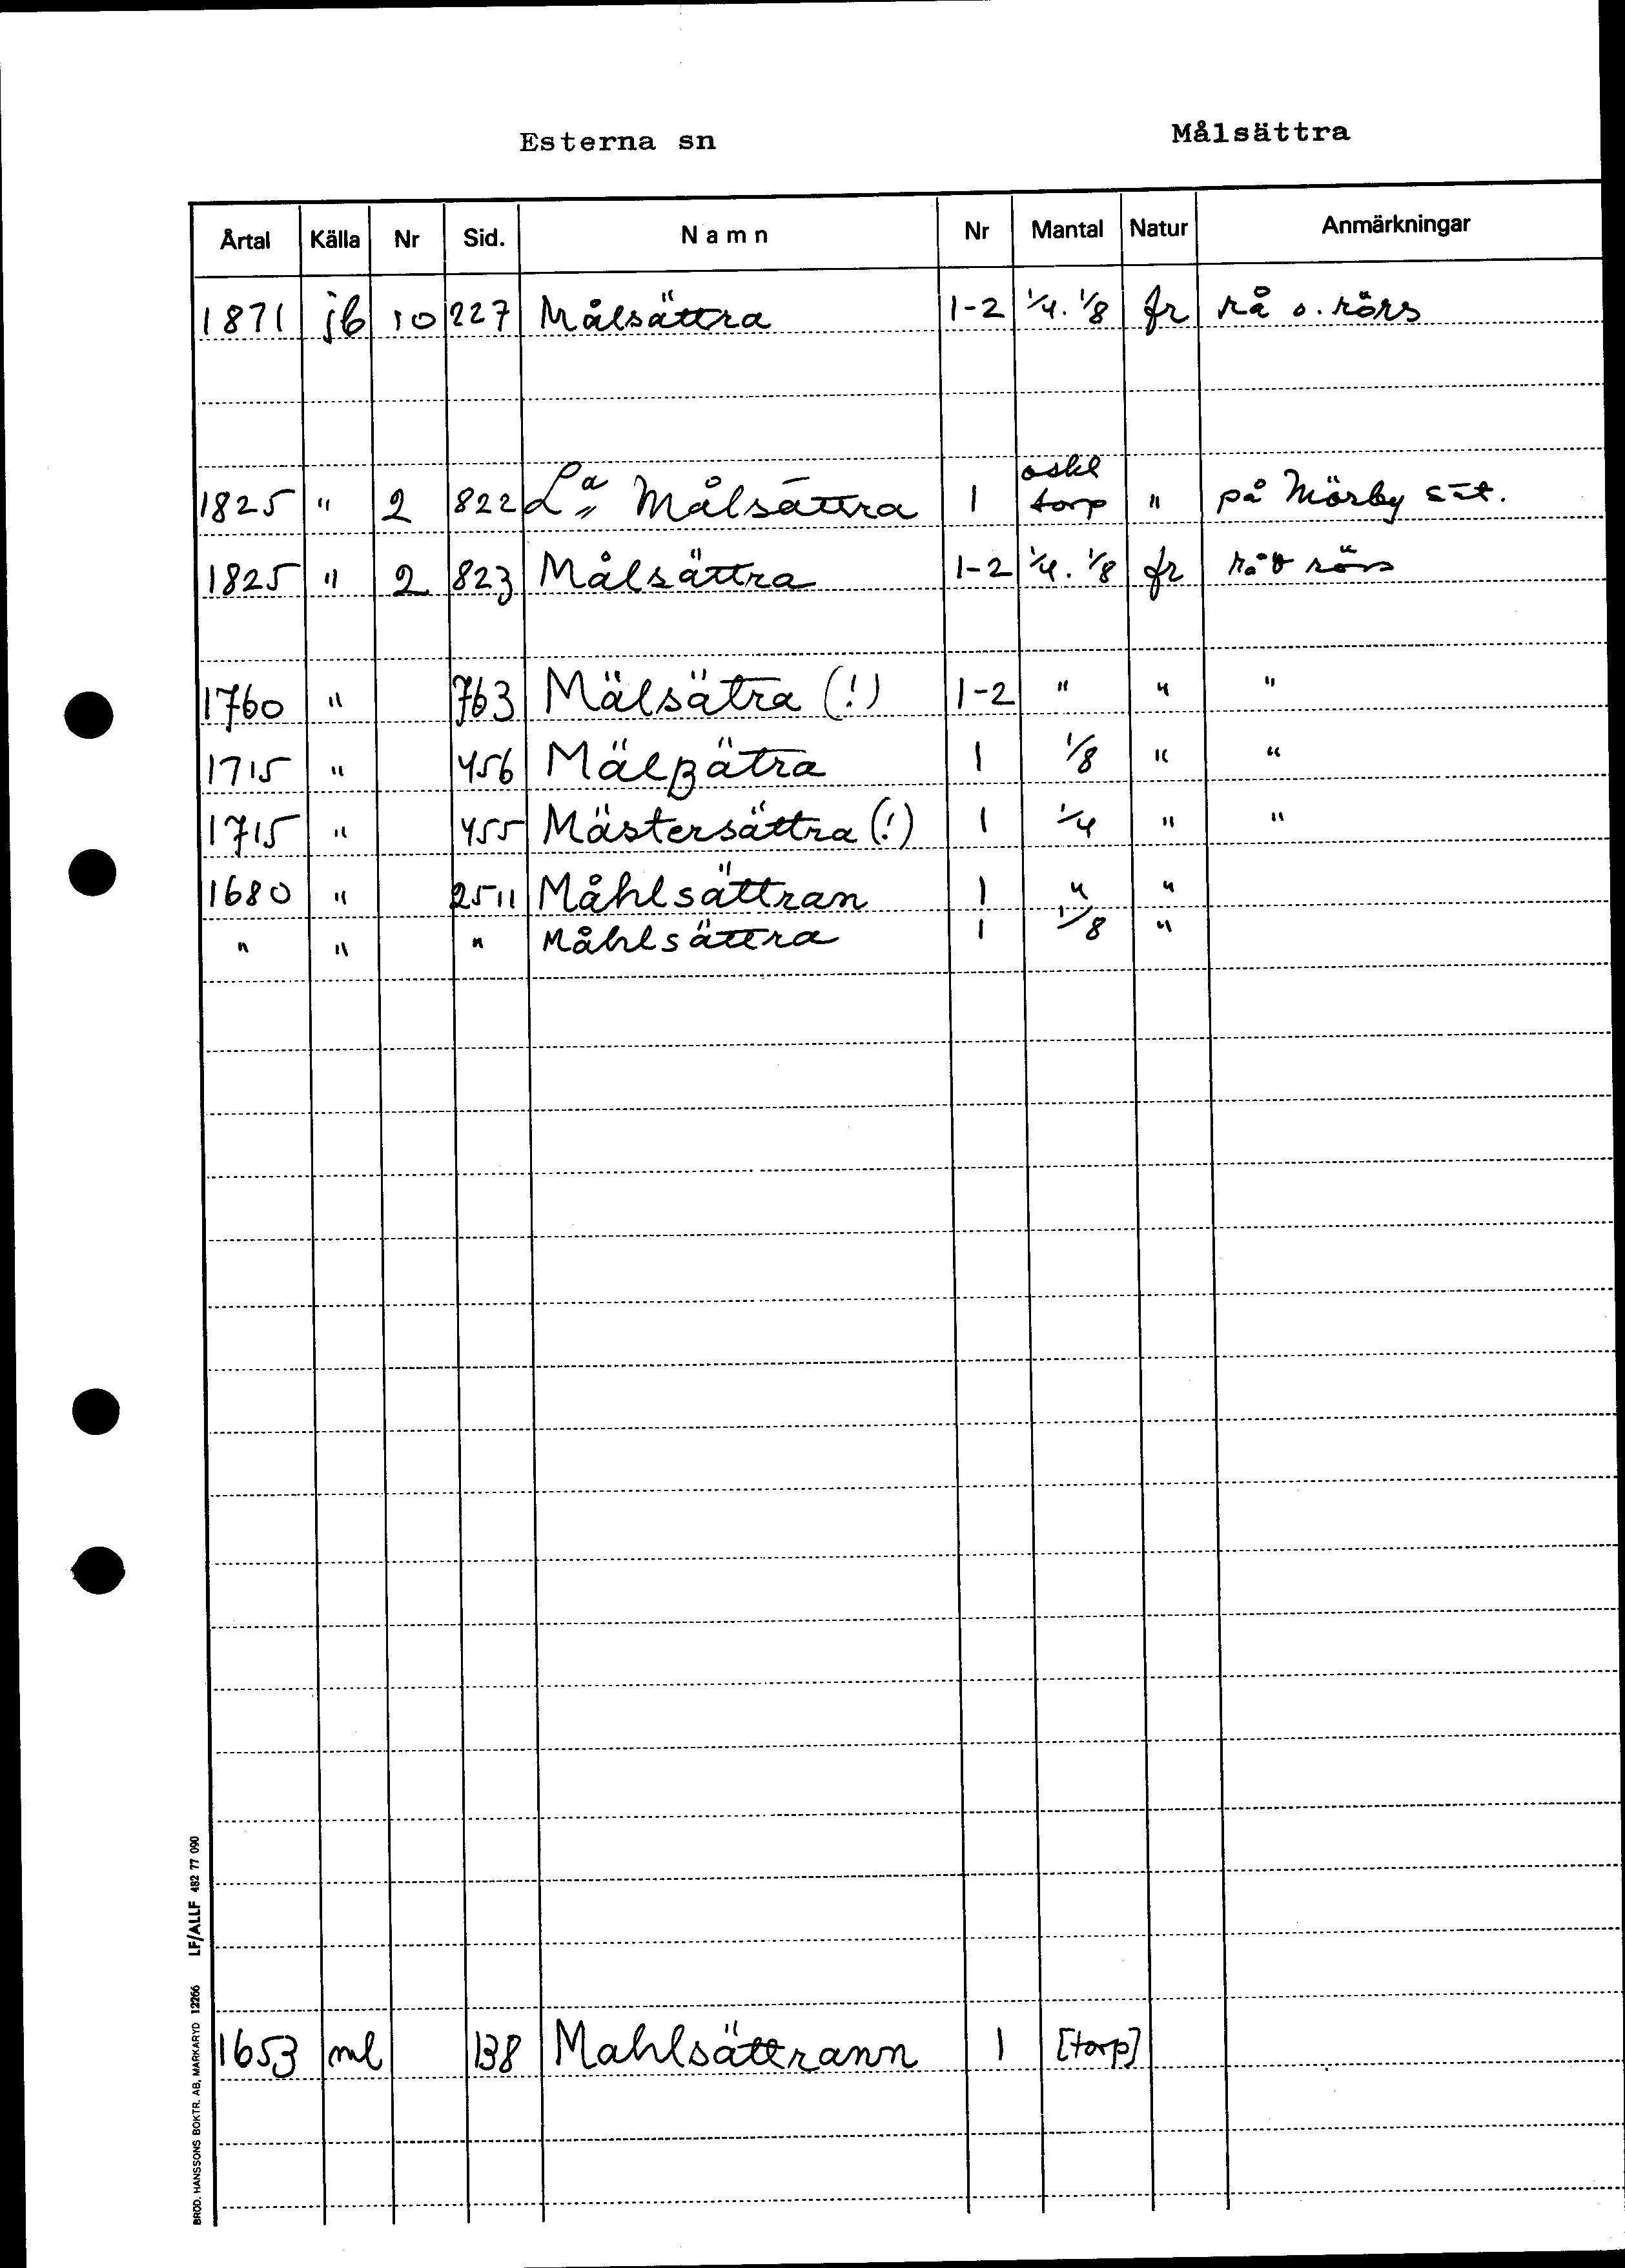 Esterna sn Målsättra
Årtal Källa Nr Sid. Namn Nr Mantal Natur Anmärkningar
1871 jb 10 227 Målsättra 1-2 1/4. 1/8 fr rå o. rörs
oskl
1825 " 2 822 La „ Målsättra 1 torp " på Mörby sät.
1825 " 2 823 Målsättra 1-2 1/4. 1/8 fr rå o rörs
1760 " 763 Mälsätra (!) 1-2 " " "
1715 " 456 Mälßätra 1 1/8 " "
1715 " 455 Mästersättra (!) 1 1/4 " "
1680 " 2511 Måhlsättran 1 " "
" " " Måhlsättra 1 1/8 "
1653 ml 138 Mahlsättrann 1 [torp]
BROD. HANSSONS BOKTR. AB, MARKARYD 12266 LF/ALLF 482 77 090